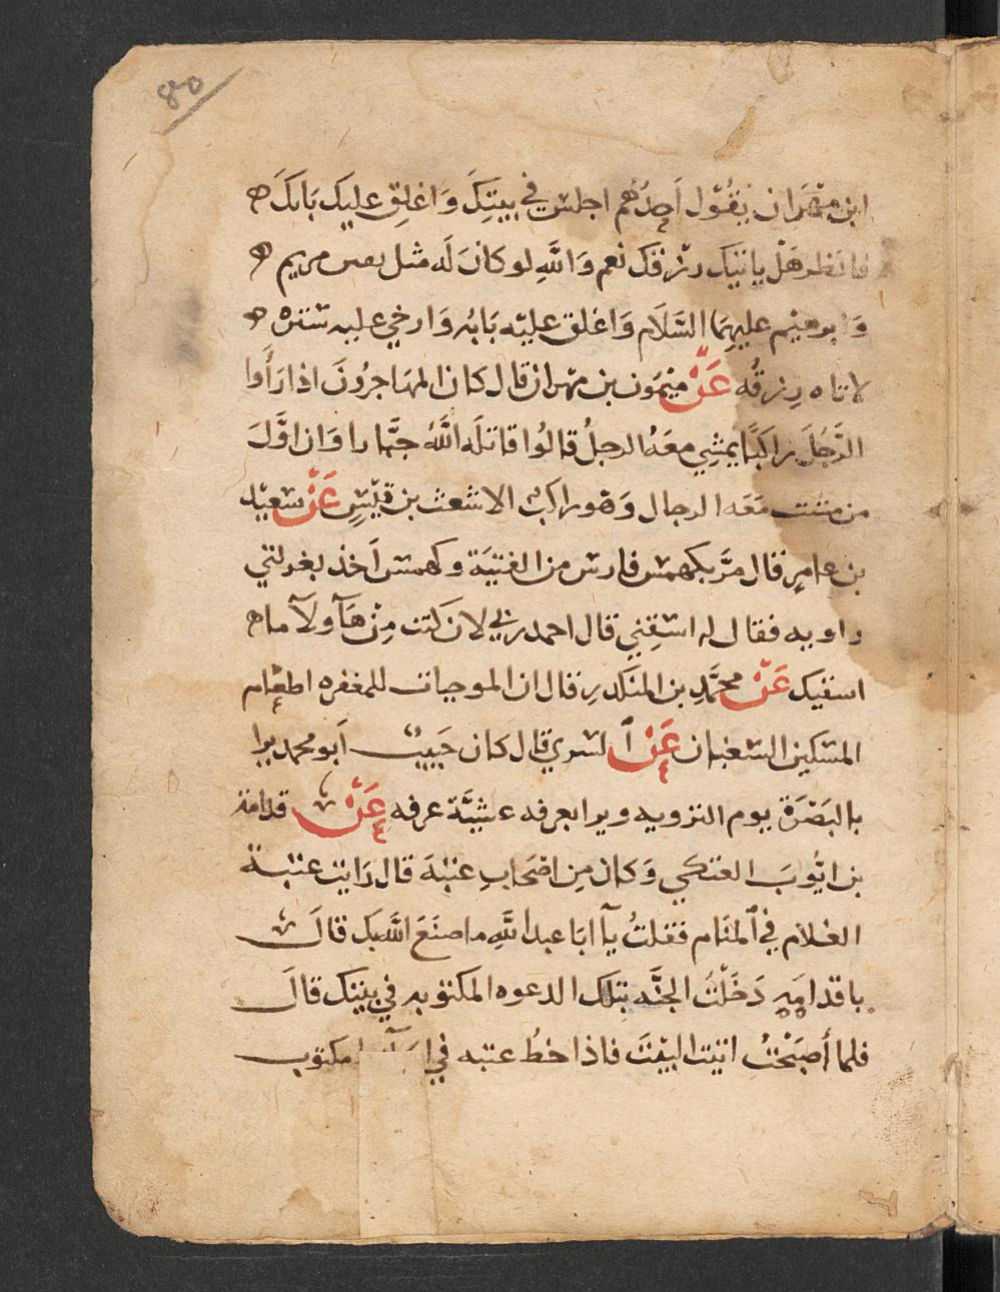 ٨٥
ابن مهران يَقُول اَحدُهُم اجلس في بيتِكَ وَاغلِق عليك بابكَ ه
فانظر هَلْ ياتيك رزقك نعم وَاللَّهِ لو كانَ لَه مثل يقين مريم ه
وَابرهيم عليهِمَا السَّلَام وَاغلق عليْه بَابُه وَارخي عليه ستره ه
لاتاه رِزقُه عَنْ ميمَون بن مهران قال كان المهَاجرُونَ اذا رَأَوا
الرَّجُلَ راكبًا يمشِي معَهُ الرجلُ قالُوا قاتله اللَّهُ جبَّارا وَان اوَّلَ
من مشت مَعَه الرجال وَهو راكب الاشعث بن قيْسٍ عَنْ سَعيْد
بن عامرٍ قال مرَّ بكهمس فارس من الفتيَة وكهمس اَخذ بغرلتي
راويه فقال له اسقِني قال احمد ربي لان كنت مِنْ هَآولآ ما ه
اسقيك عَنْ محمَّدِ بن المنكدرِ قال ان الموجبات للمغفره اطعَام
المسكين السغبان عَنْ السري قال كان حَبيب اَبو محمد يرا
بالبَصْرَة يوم الترويه ويرا بعرفه عشيَّة عرفه عَنْ قدامة
بن ايُّوبَ العتكي وَكان مِن اصْحَابِ عتبَةَ قال رَايت عتبة
الغلام في المنَام فقلتُ يآ ابَا عبد اللَّهِ ما صنَعَ اللَّه بك قالَ
ياقدامَه دَخَلْتُ الجنَّه بتلك الدعوه المكتوبه في بيتك قالَ
فلما أصبَحْتُ اتيت البيْتَ فاذا خطُ عتبه في مكتوب